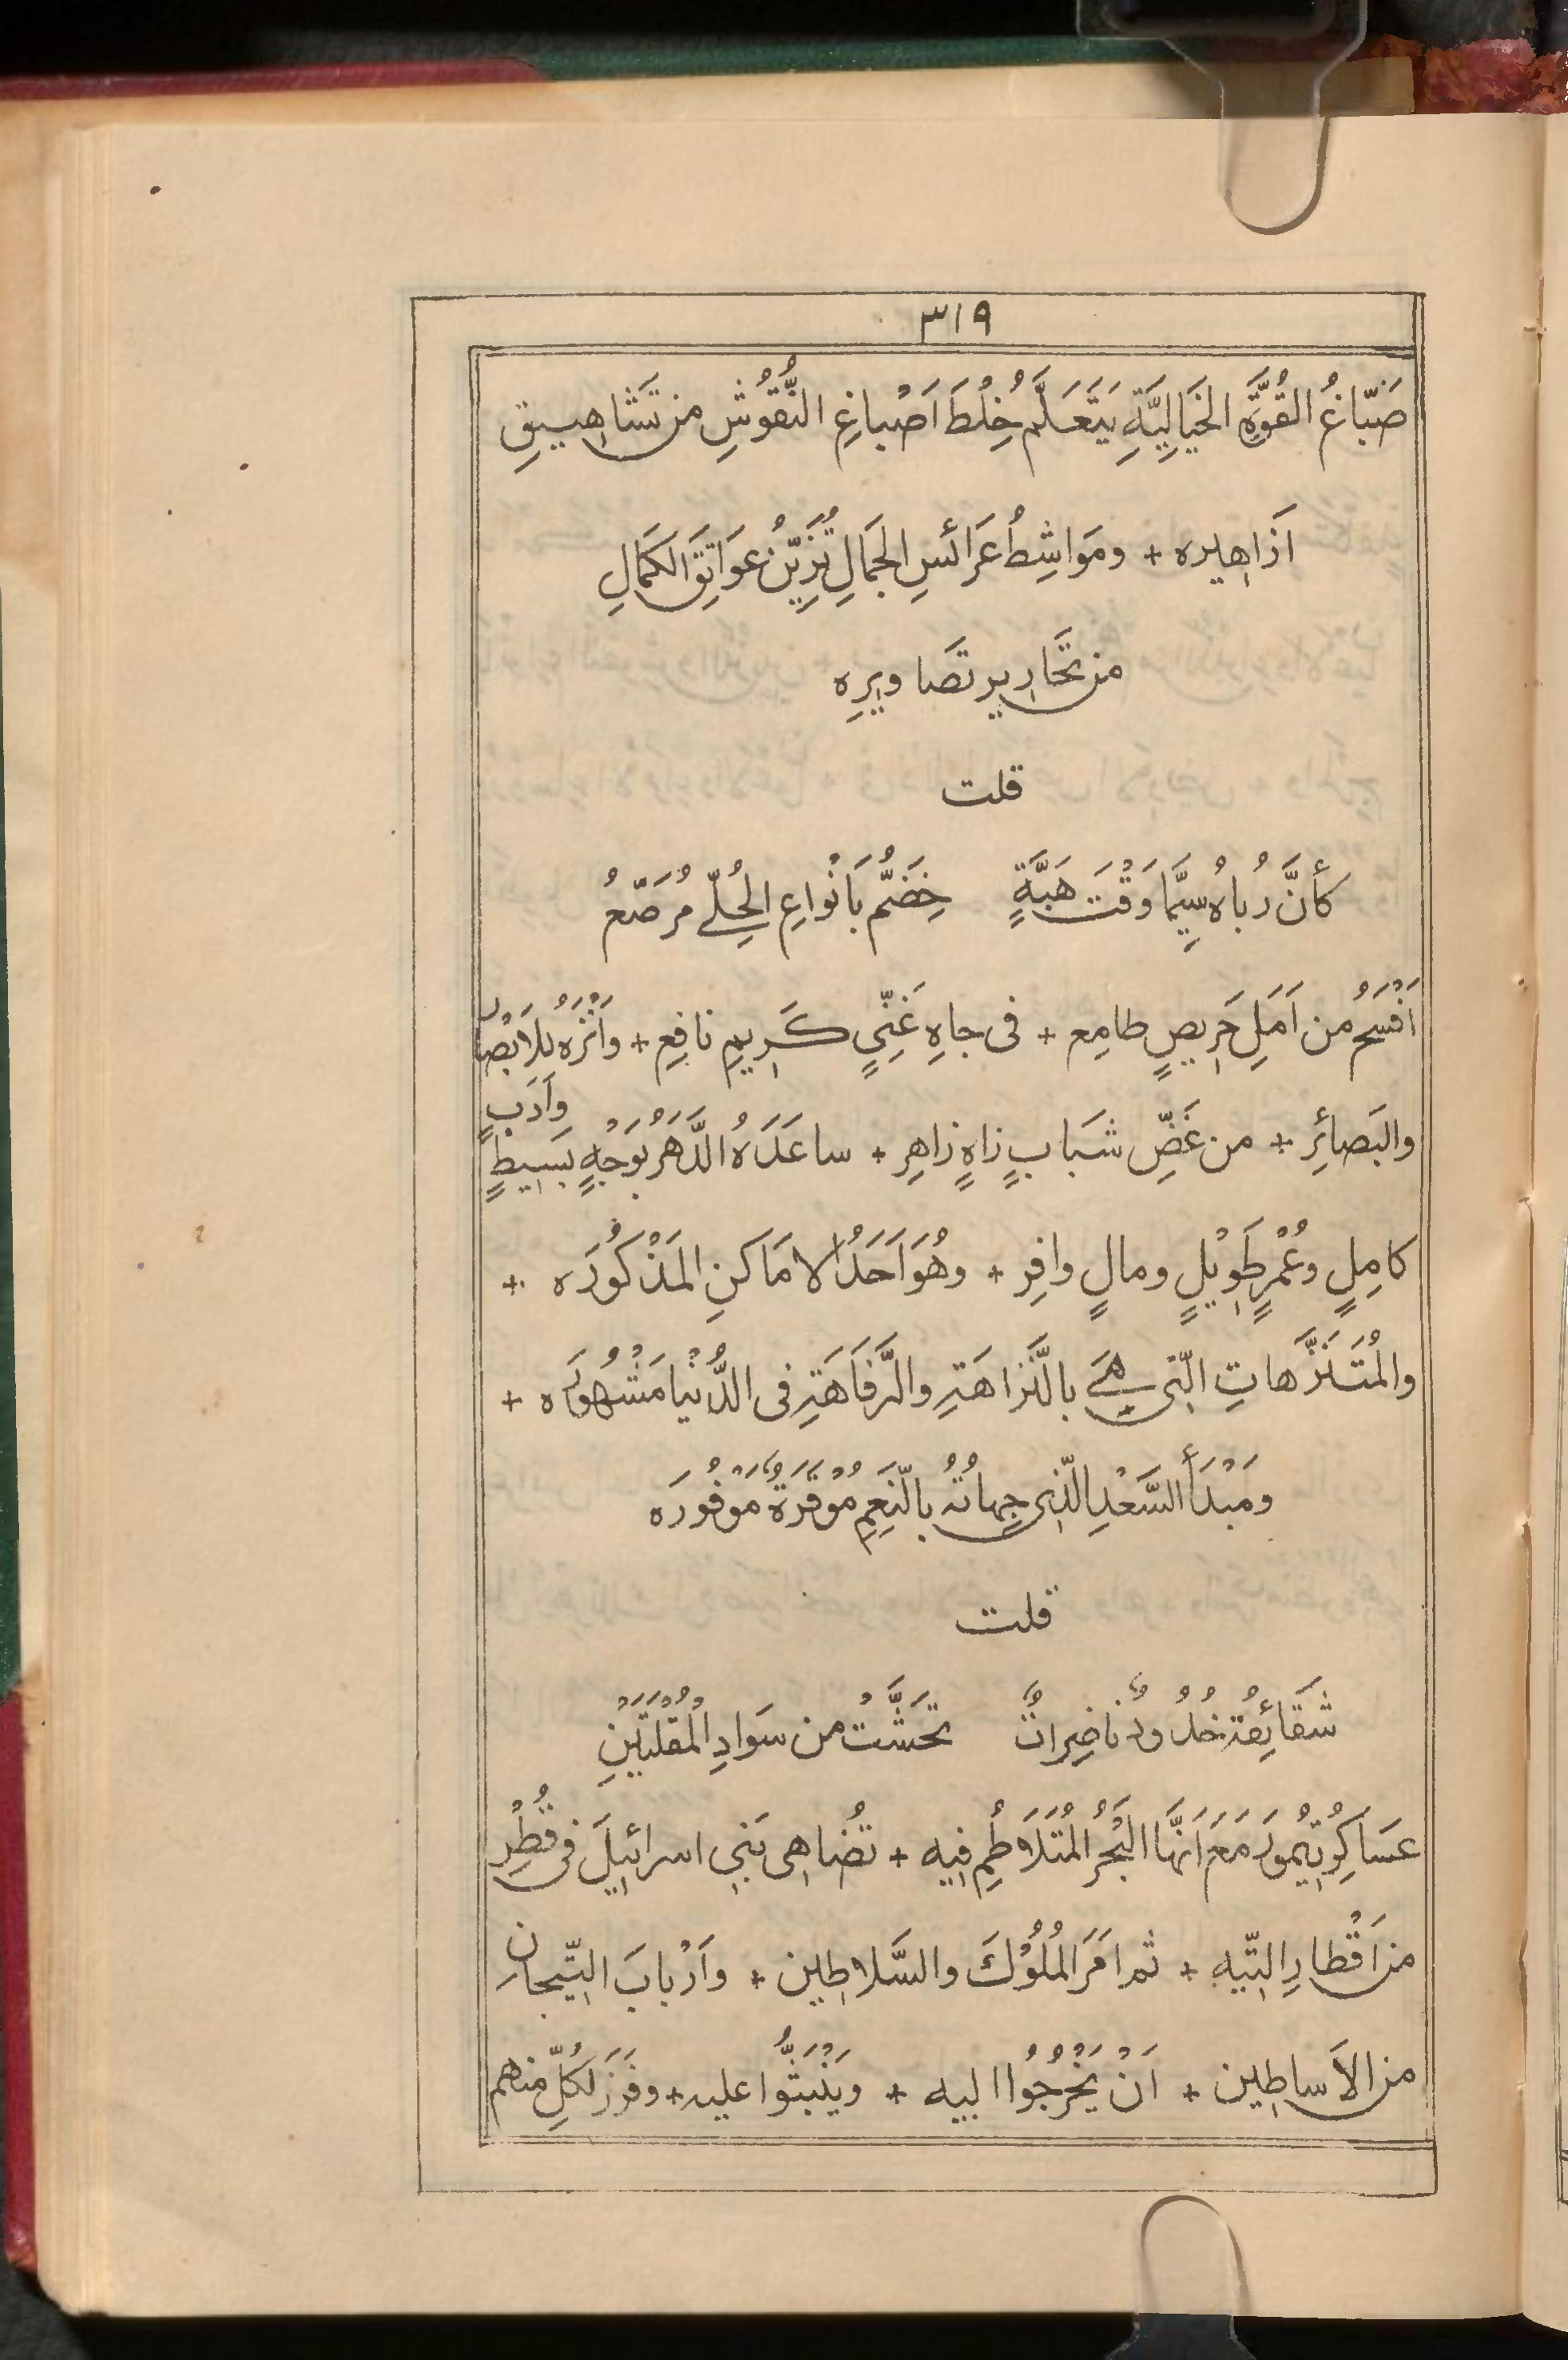 ٣١٩
صَبّاغُ القُوَّةِ الخَيَالِيَّةِ يَتَعَلَّمُ خِلْطَ اَصْباغِ النُّقُوْشِ من تَشَاهِيقِ
اَزَاهِيره + ومَوَاشِطُ عَرَائسِ الجَمَالِ تُزَيِّنُ عَوَاتِقَ الكَمَالِ
من تَحَارِيرِ تصَاويرِه
قلت
كأنَّ رُباهُ سِيَّمَا وَقْتَ هَبَّةٍ خِضَمٌّ بَأنْواعِ الحُلِّے مُرَصَّعُ
اَفْسَحُ من اَمَلِ حَرِيصٍ طامِع + فى جاهِ غَنِّىٍ كَرِيمٍ نافِعِ + واَنْزَهُ لِلاَبْصارِ
والبَصائِرِ + من غَضِّ شَبَابٍ زاهٍ زاهِرِ + ساعَدَهُ الدَّهْرُ بوَجْهٍ بَسِيطٍ وأدَبٍ
كامِلٍ وعُمْرٍ طَوِيْلٍ ومالٍ وافِر + وهُوَ اَحَدُ الامَاكنِ المَذْكُورَه +
والمُتَنَزَّهاتِ الّتى هِىَ بالنَّزاهَةِ والرَّفَاهَةِ فى الدُّنْيا مَشْهُورَه +
ومَبْدَأُ السَّعْدِ الّذِى جِهاتُهُ بالنِّعَمِ مُوْقَرَةٌ مَوْفُورَه
قلت
شَقَائِقُهُ خُدُودٌ ناضِراتٌ تَحَشَّتْ من سَوَادِ المُقْلَتَيْنِ
عَسَاكِرُ تِيْمُورَ مَعَ اَنَّهَا البَحْرُ المُتَلَاطُمِ فيه + تُضَاهِى بَنِى اسرائيلَ فى قُطْرِ
من اَقْطارِ التِّيه + ثم اَمَرَ المُلُوْكَ والسَّلاطِين + واَرْبابَ التِّيجانِ
من الاَساطِين + اَنْ يَخْرُجُوْا اليه + ويَنْبَثُّوا عليه + وفَرَزَ لكُلٍّ منهم